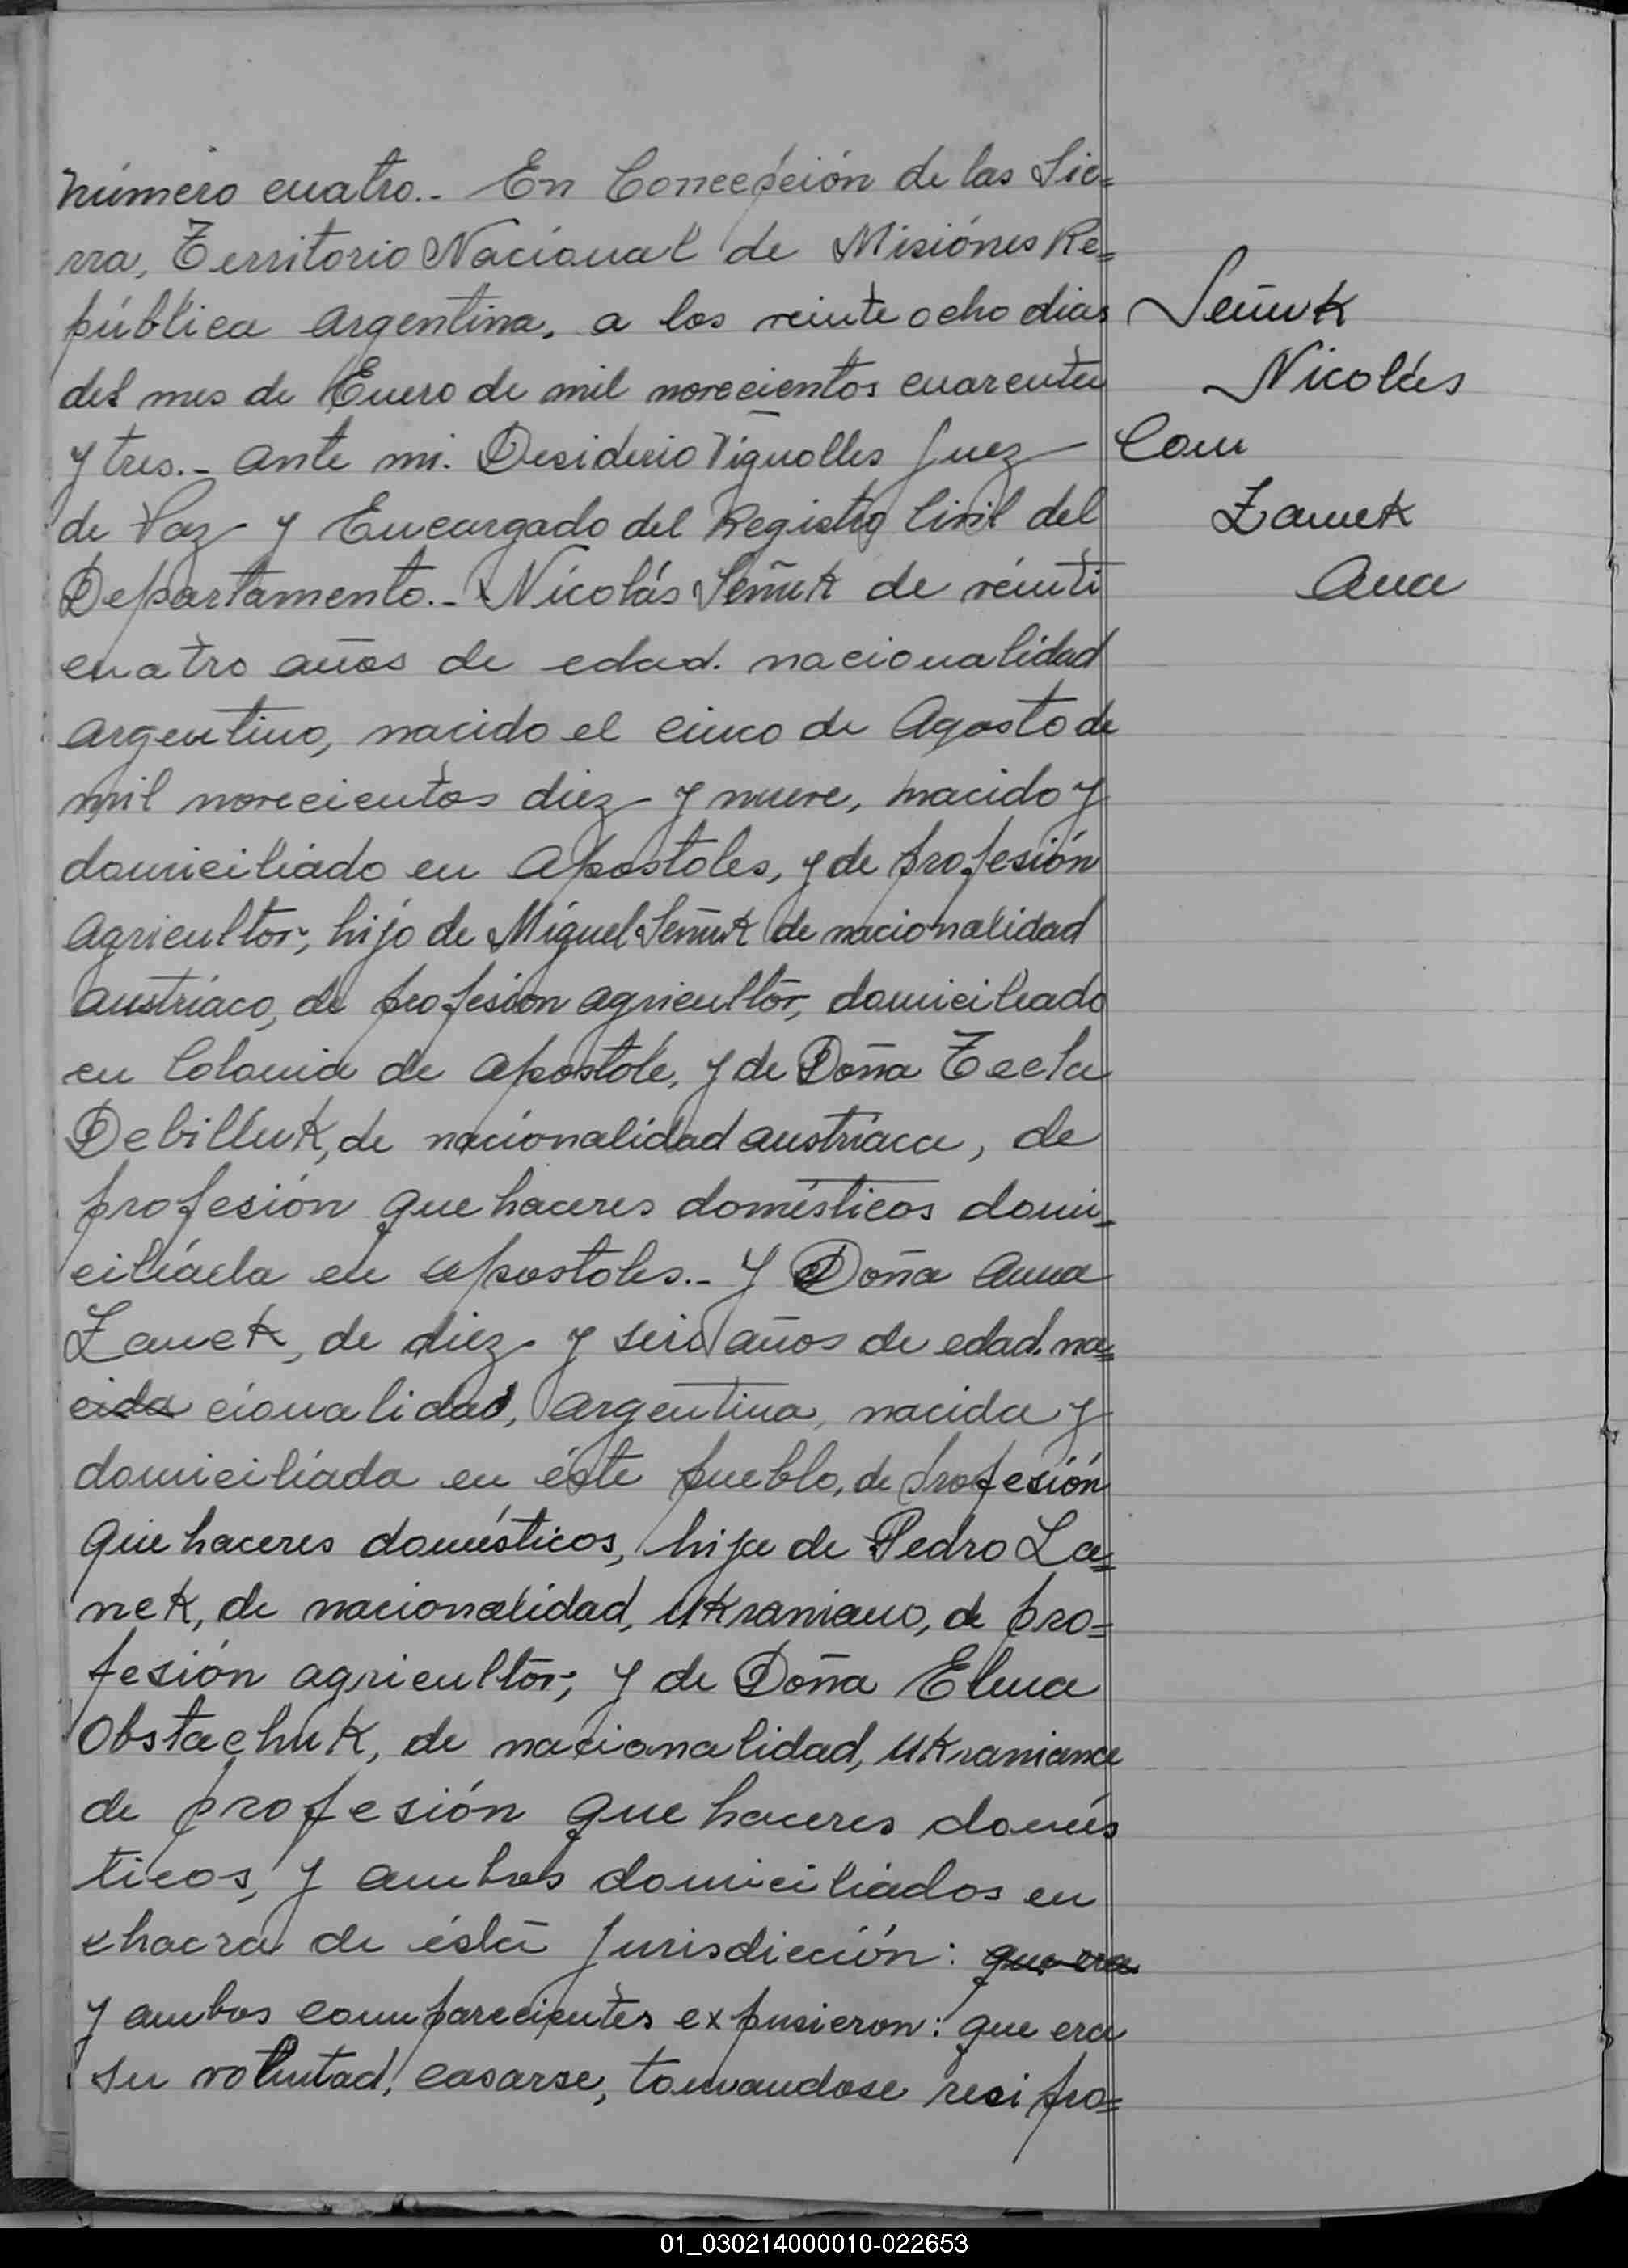 Número cuatro.- En Concepción de las Sie=
rra, Territorio Nacional de Misiónes Re=
pública Argentina, a los veinte ocho dias
del mes de Enero de mil novecientos cuarenta
y tres.- ante mi. Desiderio Vignolles Juez
de Paz y Encargado del Registro Civil del
Departamento.- Nicolás Señuk de veinti
cuatro años de edad. nacionalidad
argentino, nacido el cinco de Agosto de
mil novecientos diez y nueve, nacido y
domiciliado en Apostoles, y de profesión
agricultor, hijo de Miguel Señuk de nacionalidad
austríaco, de profesion agricultor, domiciliado
en Colonia de apostole, y de Doña Tecla
Debilluk, de nacionalidad austríaca, de
profesión que haceres domésticos domi-
ciliada en apostoles.- Y Doña Anna
Zanek, de diez y seis años de edad. na=
cida cionalidad, argentina, nacida y
domiciliada en éste pueblo, de profesión
que haceres domésticos, hija de Pedro La=
nek, de nacionalidad, Ukraniano, de pro=
fesión agricultor; y de Doña Elena
Obstachuk, de nacionalidad, Ukraniana
de profesión que haceres domés
ticos, y ambos domiciliados en
chacra de ésta Jurisdicción: que era
y ambos comparecientes expusieron: que era
su voluntad, casarse, tomandose recipro=
Señuk
Nicolás
Con
Zanek
Ana
01_030214000010-022653